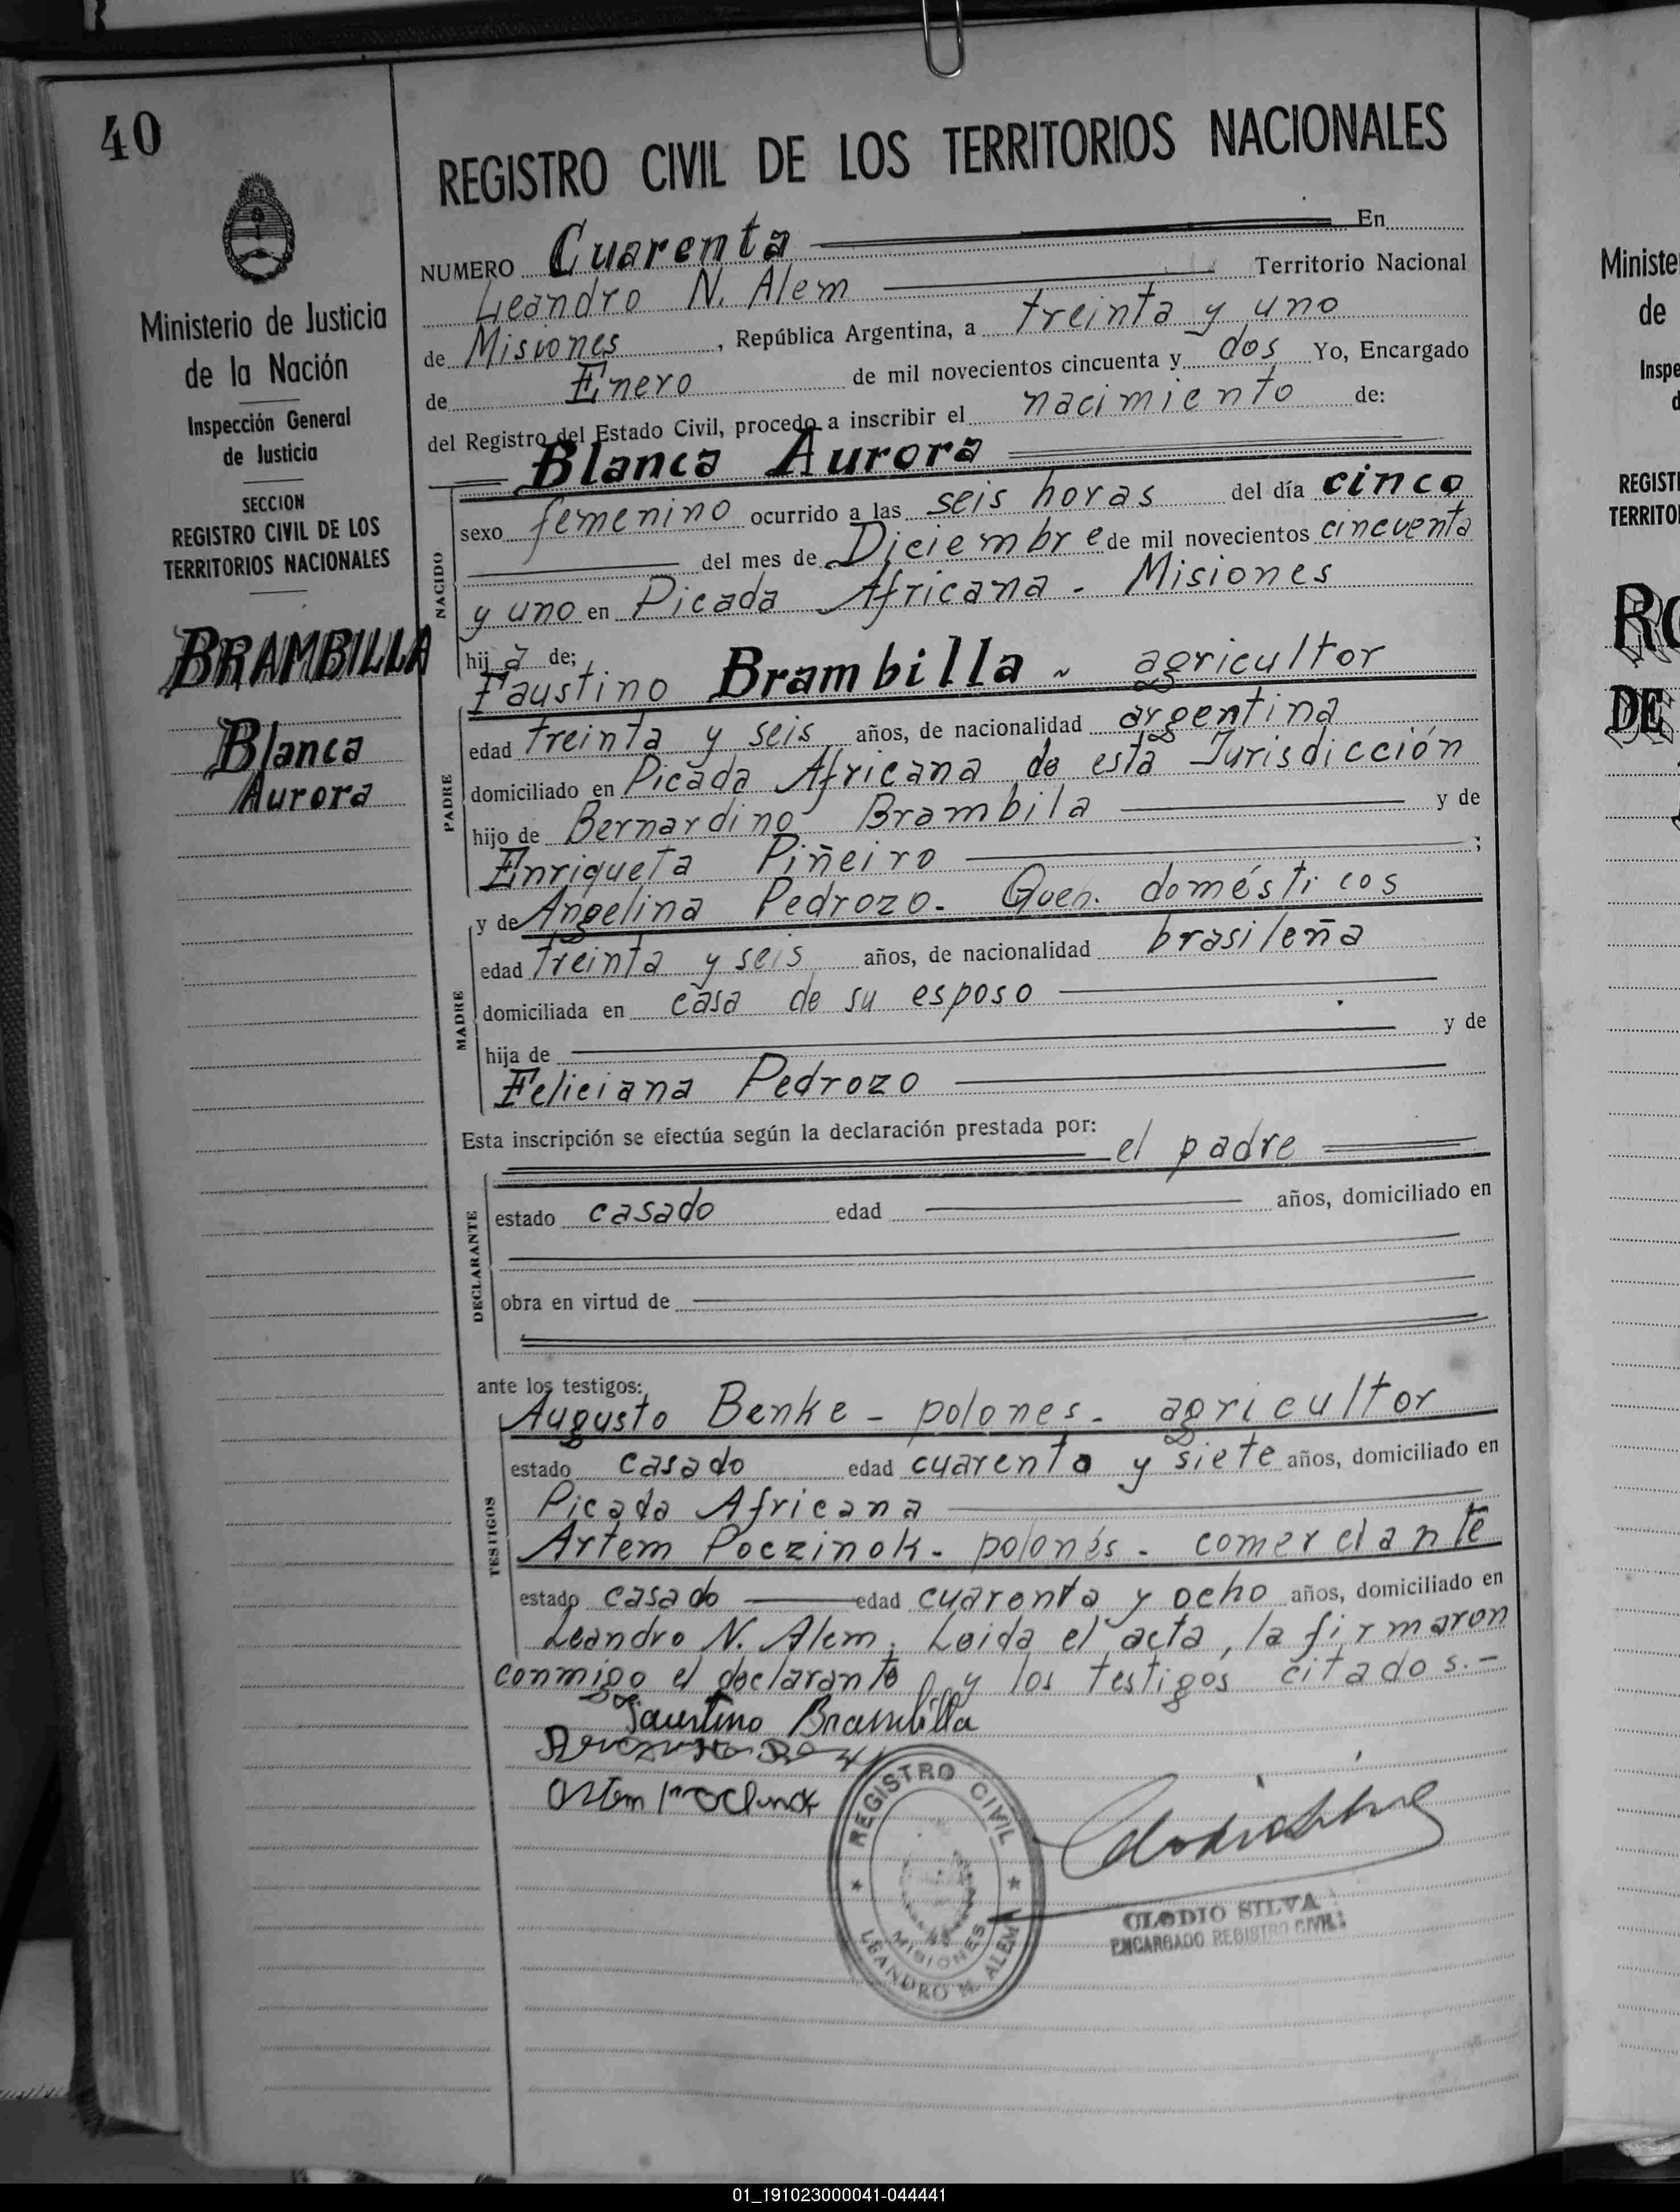 40
REGISTRO CIVIL DE LOS TERRITORIOS NACIONALES
Ministerio de Justicia
de la Nación
Inspección General
de Justicia
SECCION
REGISTRO CIVIL DE LOS
TERRITORIOS NACIONALES
BRAMBILLA
Blanca
Aurora
NUMERO Cuarenta En
Leandro N. Alem Territorio Nacional
de Misiones, República Argentina, a treinta y uno
de Enero de mil novecientos cincuenta y dos Yo, Encargado
del Registro del Estado Civil, procedo a inscribir el nacimiento de:
Blanca Aurora
NACIDO
sexo femenino ocurrido a las seis horas del día cinco
del mes de Diciembre de mil novecientos cincuenta
y uno en Picada Africana - Misiones
hija de;
Faustino Brambilla - agricultor
PADRE
edad treinta y seis años, de nacionalidad argentina
domiciliado en Picada Africana de esta Jurisdicción
hijo de Bernardino Brambila y de
Enriqueta Piñeiro ;
y de Angelina Pedrozo. Queh. domésticos
MADRE
edad treinta y seis años, de nacionalidad brasileña
domiciliada en casa de su esposo
hija de y de
Feliciana Pedrozo
Esta inscripción se efectúa según la declaración prestada por:
el padre
DECLARANTE
estado casado edad años, domiciliado en
obra en virtud de
ante los testigos:
Augusto Benke - polones - agricultor
TESTIGOS
estado casado edad cuarenta y siete años, domiciliado en
Picada Africana
Artem Poczinok - polonés - comerciante
estado casado edad cuarenta y ocho años, domiciliado en
Leandro N. Alem. Leida el acta, la firmaron
conmigo el declarante y los testigos citados.-
Faustino Brambilla
REGISTRO CIVIL
MISIONES
LEANDRO N. ALEM
CLODIO SILVA
ENCARGADO REGISTRO CIVIL
Ministe
de
Inspe
d
REGIST
TERRITO
RO
DE
01_191023000041-044441